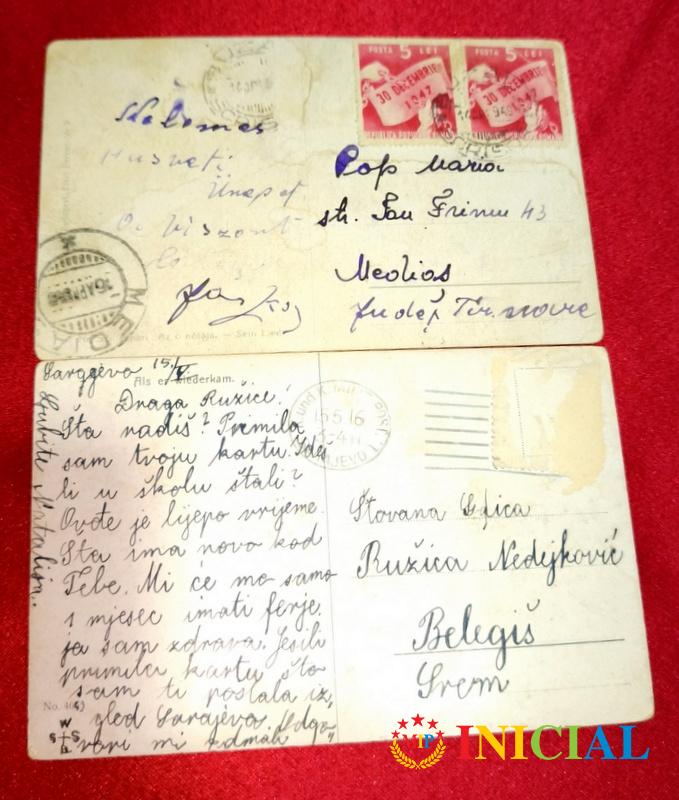 POSTA 5 LEI
30 DECEMBRIE
1947
POSTA 5 LEI
30 DECEMBRIE
1947
Kelemes
Husveti
Ünepet
Viszont
Pop Maria
str. 43
Medias
Județ Tir.
MEDIA
Sarajevo 15./V.
Als er wiederkam.
Draga Ružice!
Šta radiš? Primila
sam tvoju kartu. Ideš
li u školu štali?
Ovđe je lijepo vrijeme.
Šta ima novo kod
Tebe. Mi će mo samo
1 mjesec imati ferje.
ja sam zdrava. Jesili
primila kartu što
sam ti poslala iz,
gled Sarajeva. Odgo„
vori mi odmah
Ljubite Natalija.
No. 40
W
S S
B
15.5.16
SARAJEVO 1
Štovana Gđica
Ružica Nedejković
Belegiš
Srem
VIP INICIAL